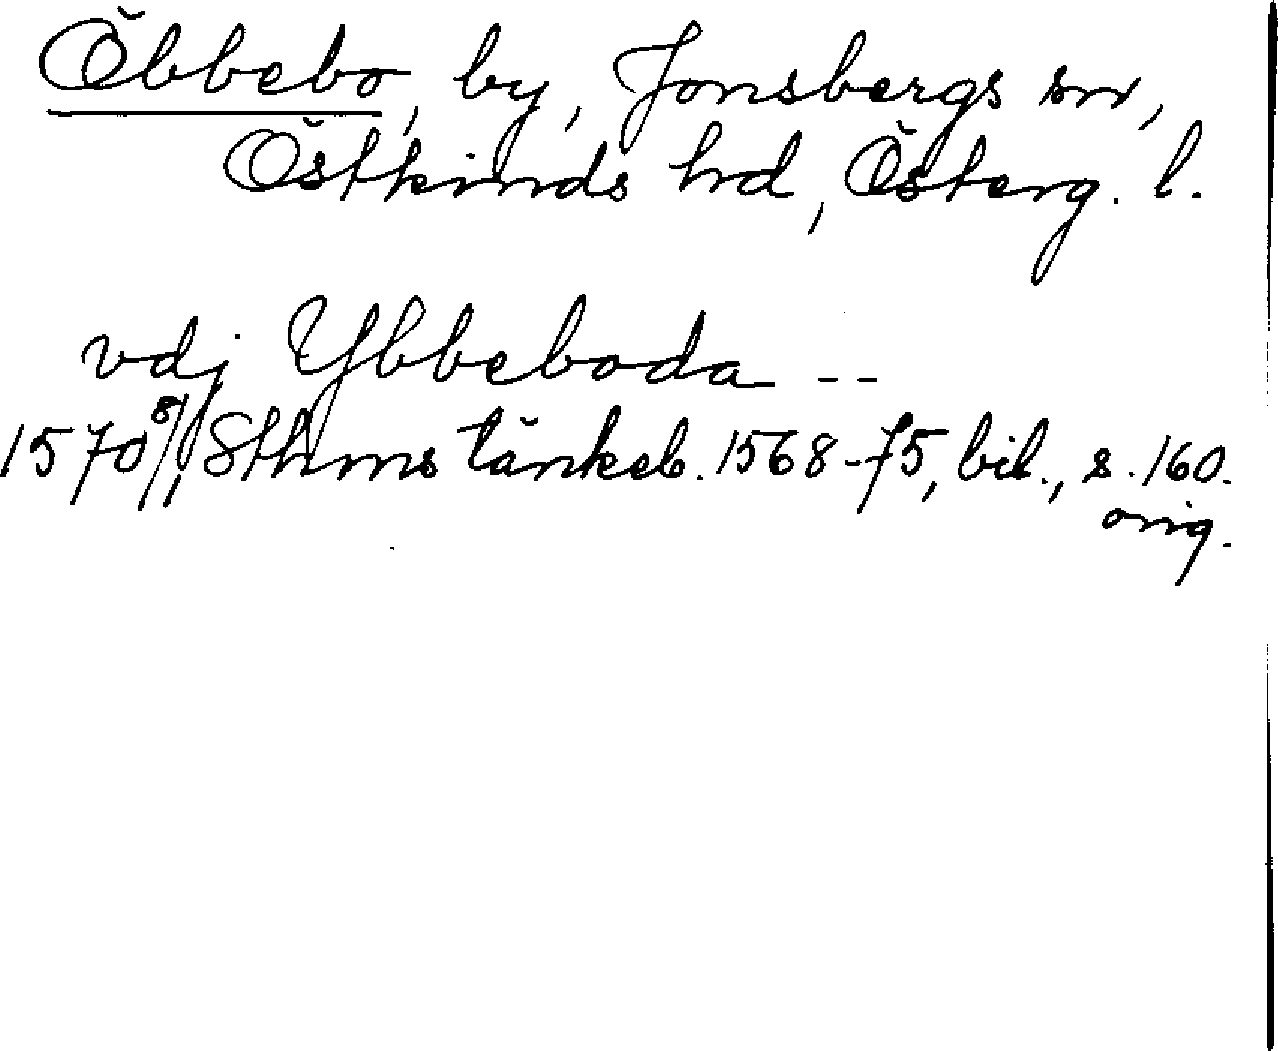 Öbbebo, by, Jonsbergs sn,
Östkinds hd, Österg. l.
vdj Ybbeboda --
1570 8/1, Sthms tänkeb. 1568-75, bil., s. 160.
orig.